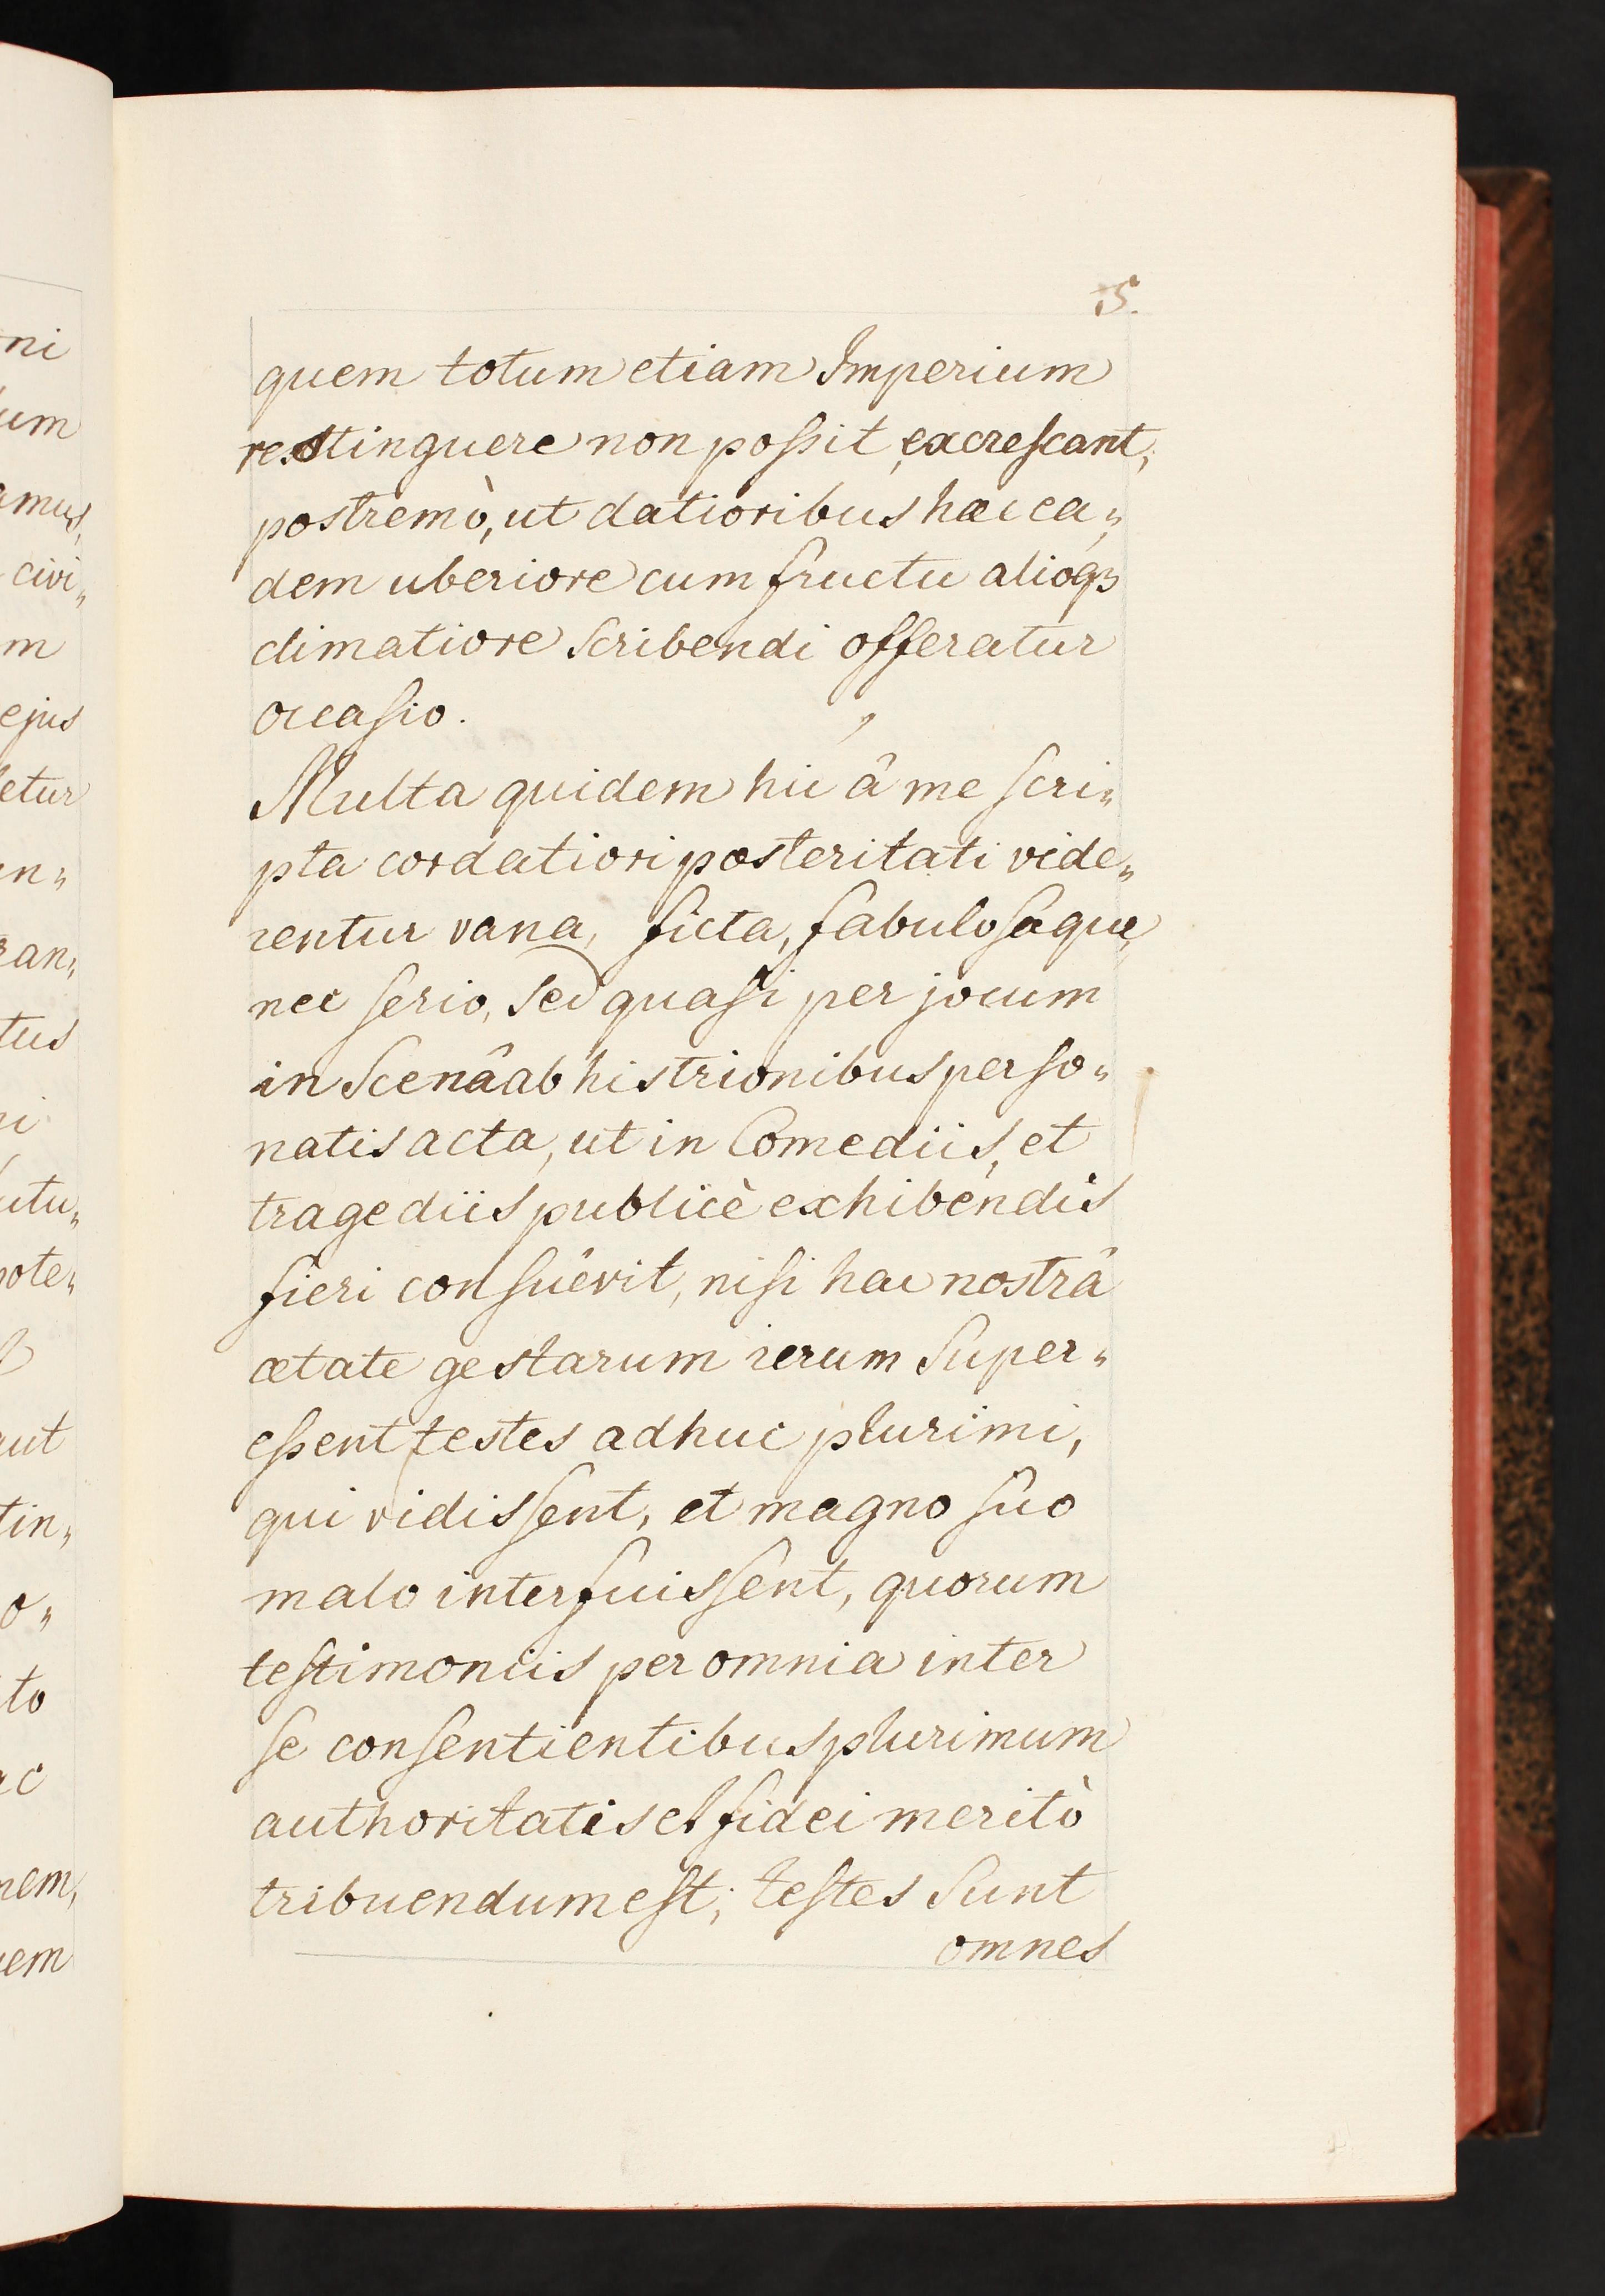 5.
quem totum etiam Imperium
restinguere non poſsit, excreſcant,
postremò, ut datioribus hæc ea„
dem uberiore cum fructu alioqꝫ
climatiore scribendi offeratur
occaſio.
Multa quidem hic â me ſcri„
pta cordatiori posteritati vide„
rentur vana, ficta, fabuloſaque
nec ſerio, sed quaſi per jocum
in Scenâ ab histrionibus perſo„
natis acta, ut in Comediis, et
tragediis publicè exhibendis
fieri conſuevit, niſi hac nostrâ
ætate gestarum rerum Super„
eſsent testes adhuc plurimi,
qui vidisſent, et magno ſuo
malo interfuisſent, quorum
teſtimoniis per omnia inter
ſe conſentientibus plurimum
authoritatis et fidei meritò
tribuendum eſt; teſtes Sunt
omnes
ni
um
amus,
civi„
m
ejus
etur
n„
an„
tus
i
utu„
ote„
ut
tin„
o„
to
c
nem,
em